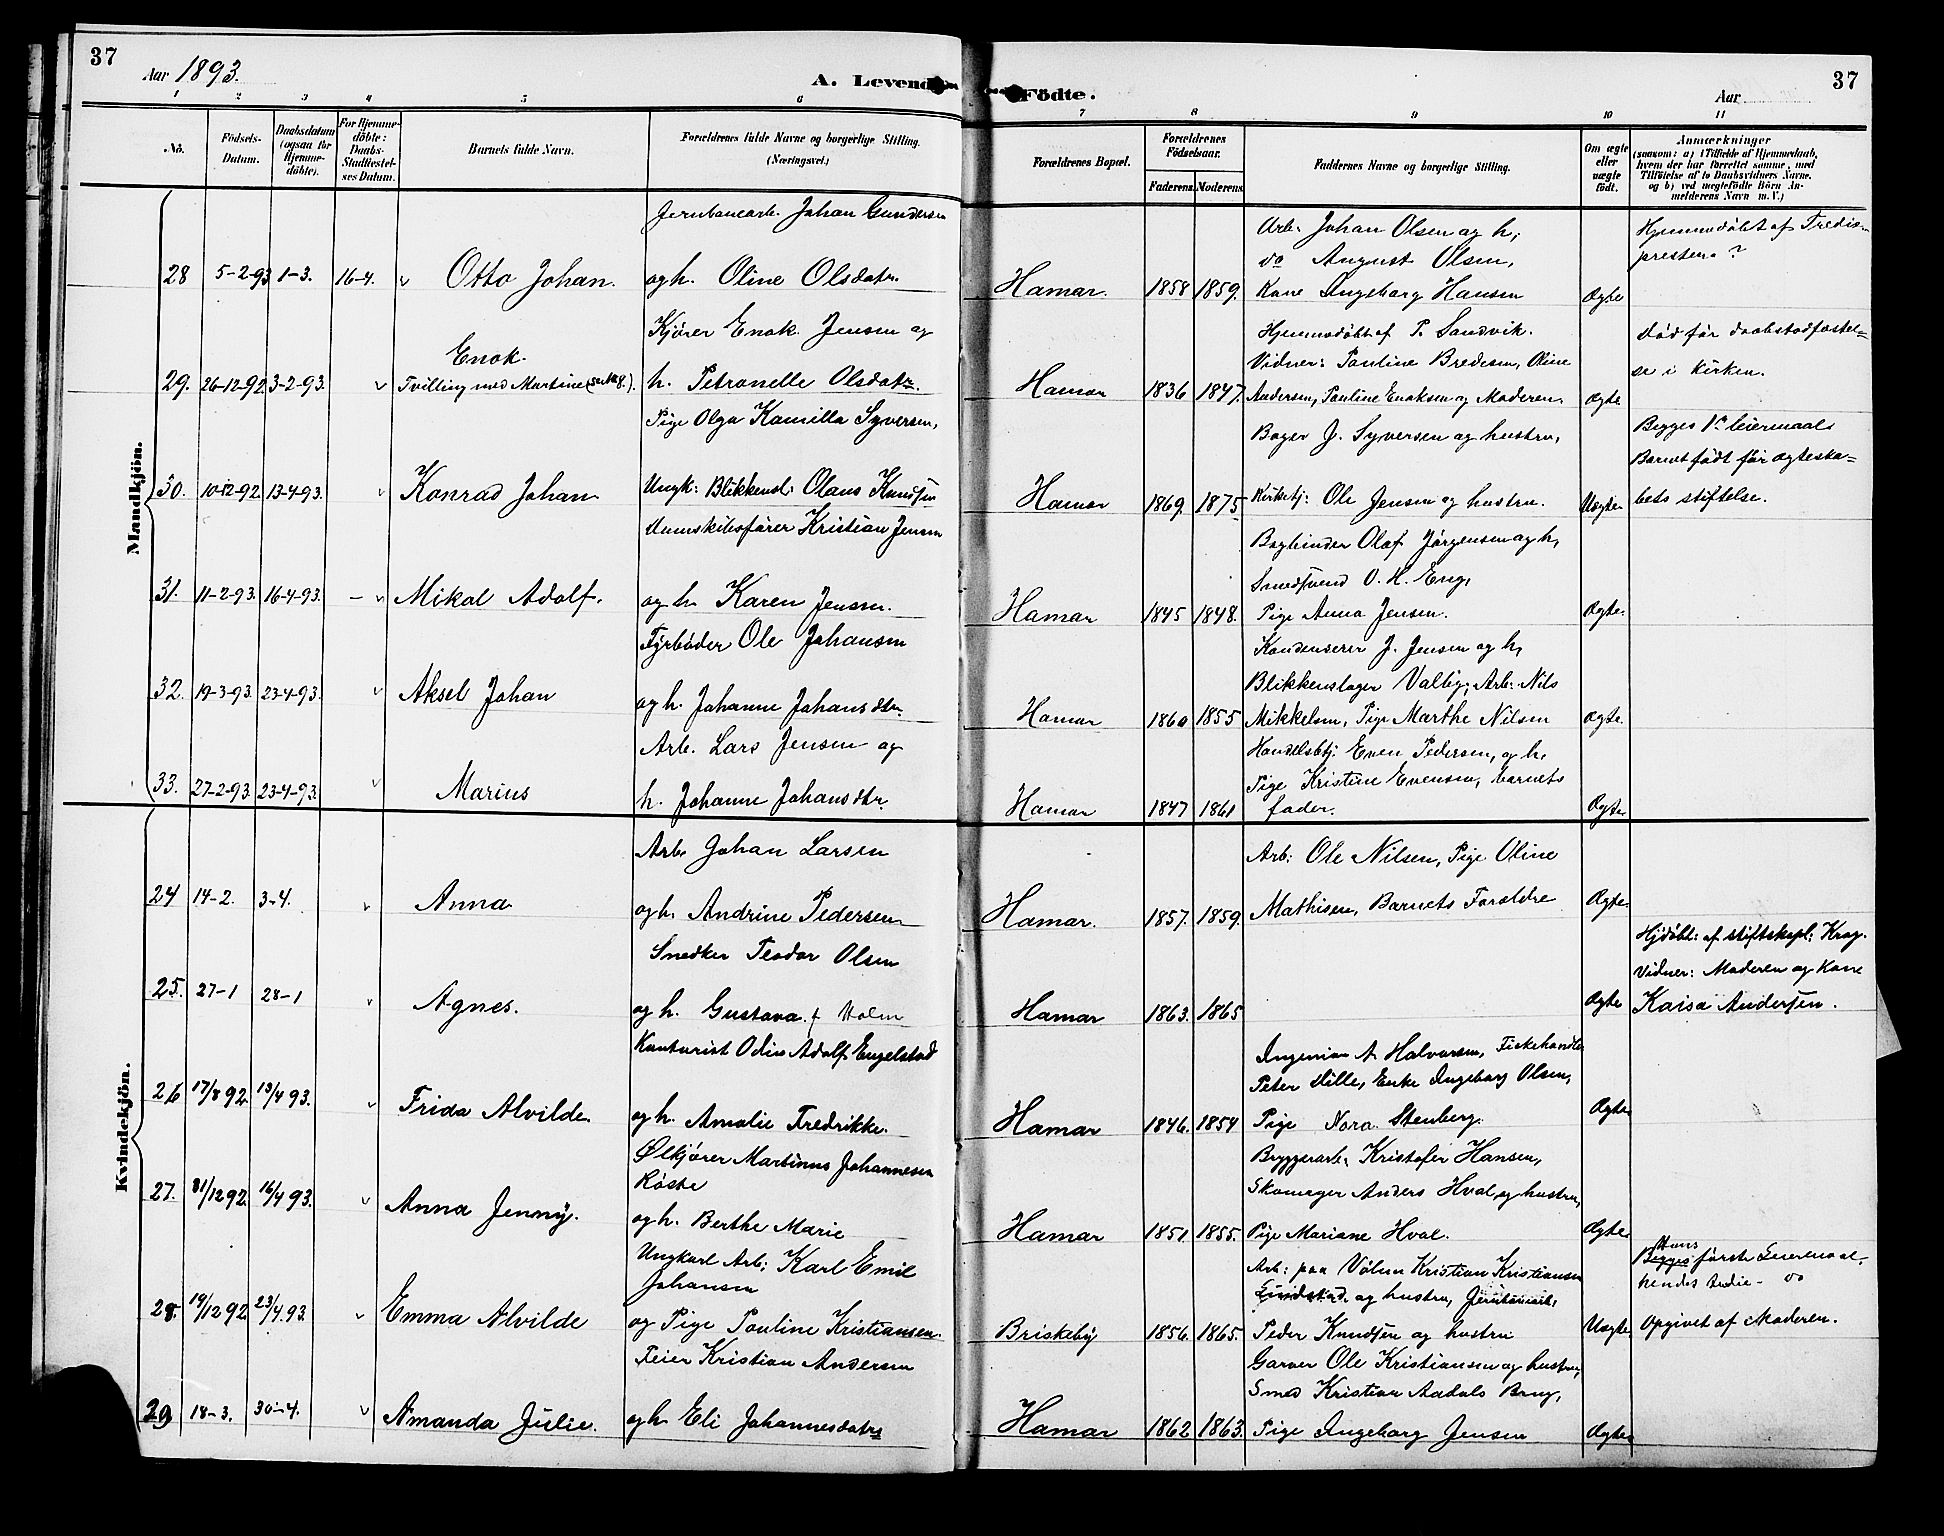 37
Aar 1893.
A. Levende
Födte.
Aar
37
1 2 3 4 5 6 7 8 9 10 11
No.
Födsels-Datum.
Daabsdatum (ogsaa for Hjemme-döbte).
For Hjemme-döbte: Daabs-Stadfæstel-ses Datum.
Barnets fulde Navn.
Forældrenes fulde Navne og borgerlige Stilling. (Næringsvei.)
Forældrenes Bopæl.
Forældrenes Födselsaar.
Faderens. Moderens.
Faddernes Navne og borgerlige Stilling.
Om ægte eller uægte födt.
Anmærkninger
(saasom: a) i Tilfælde af Hjemmedaab, hvem der har forrettet samme, med Tilföielse af to Daabsvidners Navne, og b) ved uægtefödte Börn An-melderens Navn m. V.)
Mandkjön.
28 5-2-93 1-3. 16-4. v Otto Johan.
Jernbanearb. Johan Gundersen
og h. Oline Olsdatr.
Hamar. 1858 1859.
Arb. Johan Olsen og h,
do August Olsen,
Kone Ingeborg Hansen
Ægte
Hjemmedöbt af Fredis-
presten.?
29. 26-12-92 3-2-93. v Enok.
Tvilling med Martine (se No 8.)
Kjører Enok Jensen og
h. Petronelle Olsdatr.
Hamar 1836 1847.
Hjemmedöbt af P. Sandvik.
Vidner: Pauline Bredesen, Oline
Andersen, Pauline Enoksen og Moderen.
Ægte
Död før daabstadfæstel-
se i kirken.
30. 10-12-92 13-4-93. v Konrad Johan
Pige Olga Kamilla Syversen,
Ungk: Blikkensl: Olaus Knudsen
Hamar 1869 1875
Bager J. Syversen og hustru,
Kirketj: Ole Jensen og hustru.
Uægte
Begges 1ste leiermaal
Barnet født før ægteska-
bets stiftelse.
31. 11-2-93. 16-4-93. - v Mikal Adolf.
Dampskibsfører Kristian Jensen
og h. Karen Jensen.
Hamar 1845 1848.
Bogbinder Olaf Jørgensen og h,
Smedsvend O. H. Eng,
Pige Anna Jensen.
Ægte.
32. 19-3-93. 23-4-93. v Aksel Johan
Fyrbøder Ole Johansen
og h. Johanne Johansdtr.
Hamar 1860 1855
Kondenserer J. Jensen og h,
Blikkenslager Valby; Arb: Nils
Mikkelsen, Pige Marthe Nilsen
Ægte.
33. 27-2-93. 23-4-93. v Marius
Arb. Lars Jensen og
h. Johanne Johansdtr.
Hamar 1847 1861
Handelsbtj: Even Pedersen, og h,
Pige Kristine Evensen, barnets
fader.
Ægte
Kvindekjön.
24 14-2. 3-4. v Anna
Arb. Johan Larsen
og h. Andrine Pedersen
Hamar. 1857. 1859.
Arb: Ole Nilsen, Pige Oline
Mathisen, Barnets Forældre
Ægte
25. 27-1 28-1 v Agnes.
Snedker Teodor Olsen
og h. Gustava f. Holm
Hamar 1863. 1865
Ægte
Hjdöbt: af stiftskapl: Krag.
Vidner: Moderen og Kone
Kaisa Andersen.
26 17/8 92. 13/4 93. v Frida Alvilde
Kontorist Odin Adolf Engelstad
og h. Amalie Fredrikke.
Hamar 1846. 1854
Ingeniør A Halvorsen, Fiskehandler
Peter Lille, Enke Ingeborg Olsen,
Pige Nora Stenberg.
Ægte
27. 31/12 92. 16/4 93. v Anna Jenny.
Ølkjører Martinus Johannesen
Røste
og h. Berthe Marie
Hamar 1851. 1855.
Bryggerarb. Kristofer Hansen,
Skomager Anders Hval og hustru,
Pige Mariane Hval.
Ægte
28. 19/12 92. 23/4.93. v Emma Alvilde
Ungkarl Arb: Karl Emil
Johansen
og Pige Pauline Kristiansen.
Briskeby 1856. 1865.
Arb: paa Vølun Kristian Kristiansen
Lundstad og hustru, Jernbanearb,
Peder Knudsen og hustru
Uægte
Hans
Begges første Leiermaal,
hendes tredie - do
Opgivet af Moderen.
29 18-3. 30-4. v Amanda Julie.
Feier Kristian Andersen
og h. Eli Johannesdatr
Hamar 1862 1863.
Garver Ole Kristiansen og hustru,
Smed Kristian Aadals Brug,
Pige Ingeborg Jensen
Ægte